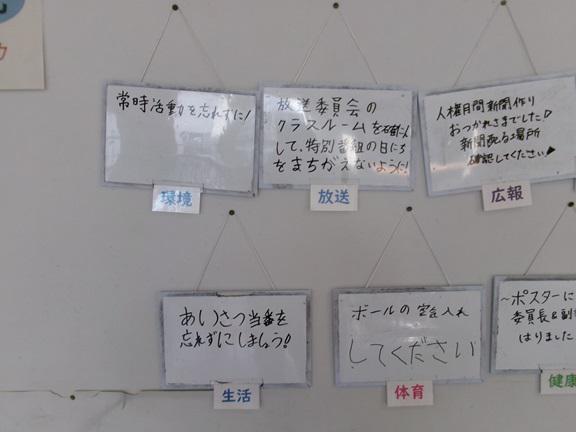 常時活動を忘れずに!
環境
放送委員会の
クラスルームを確認
して、特別番組の日にち
をまちがえないように!
放送
人権月間新聞作り
おつかれさまでした!
新聞配る場所
確認してください
広報
あいさつ当番を
忘れずにしましょう!
生活
ボールの空気入れ
してください
体育
〜ポスターに
委員長&副
はりました
健康